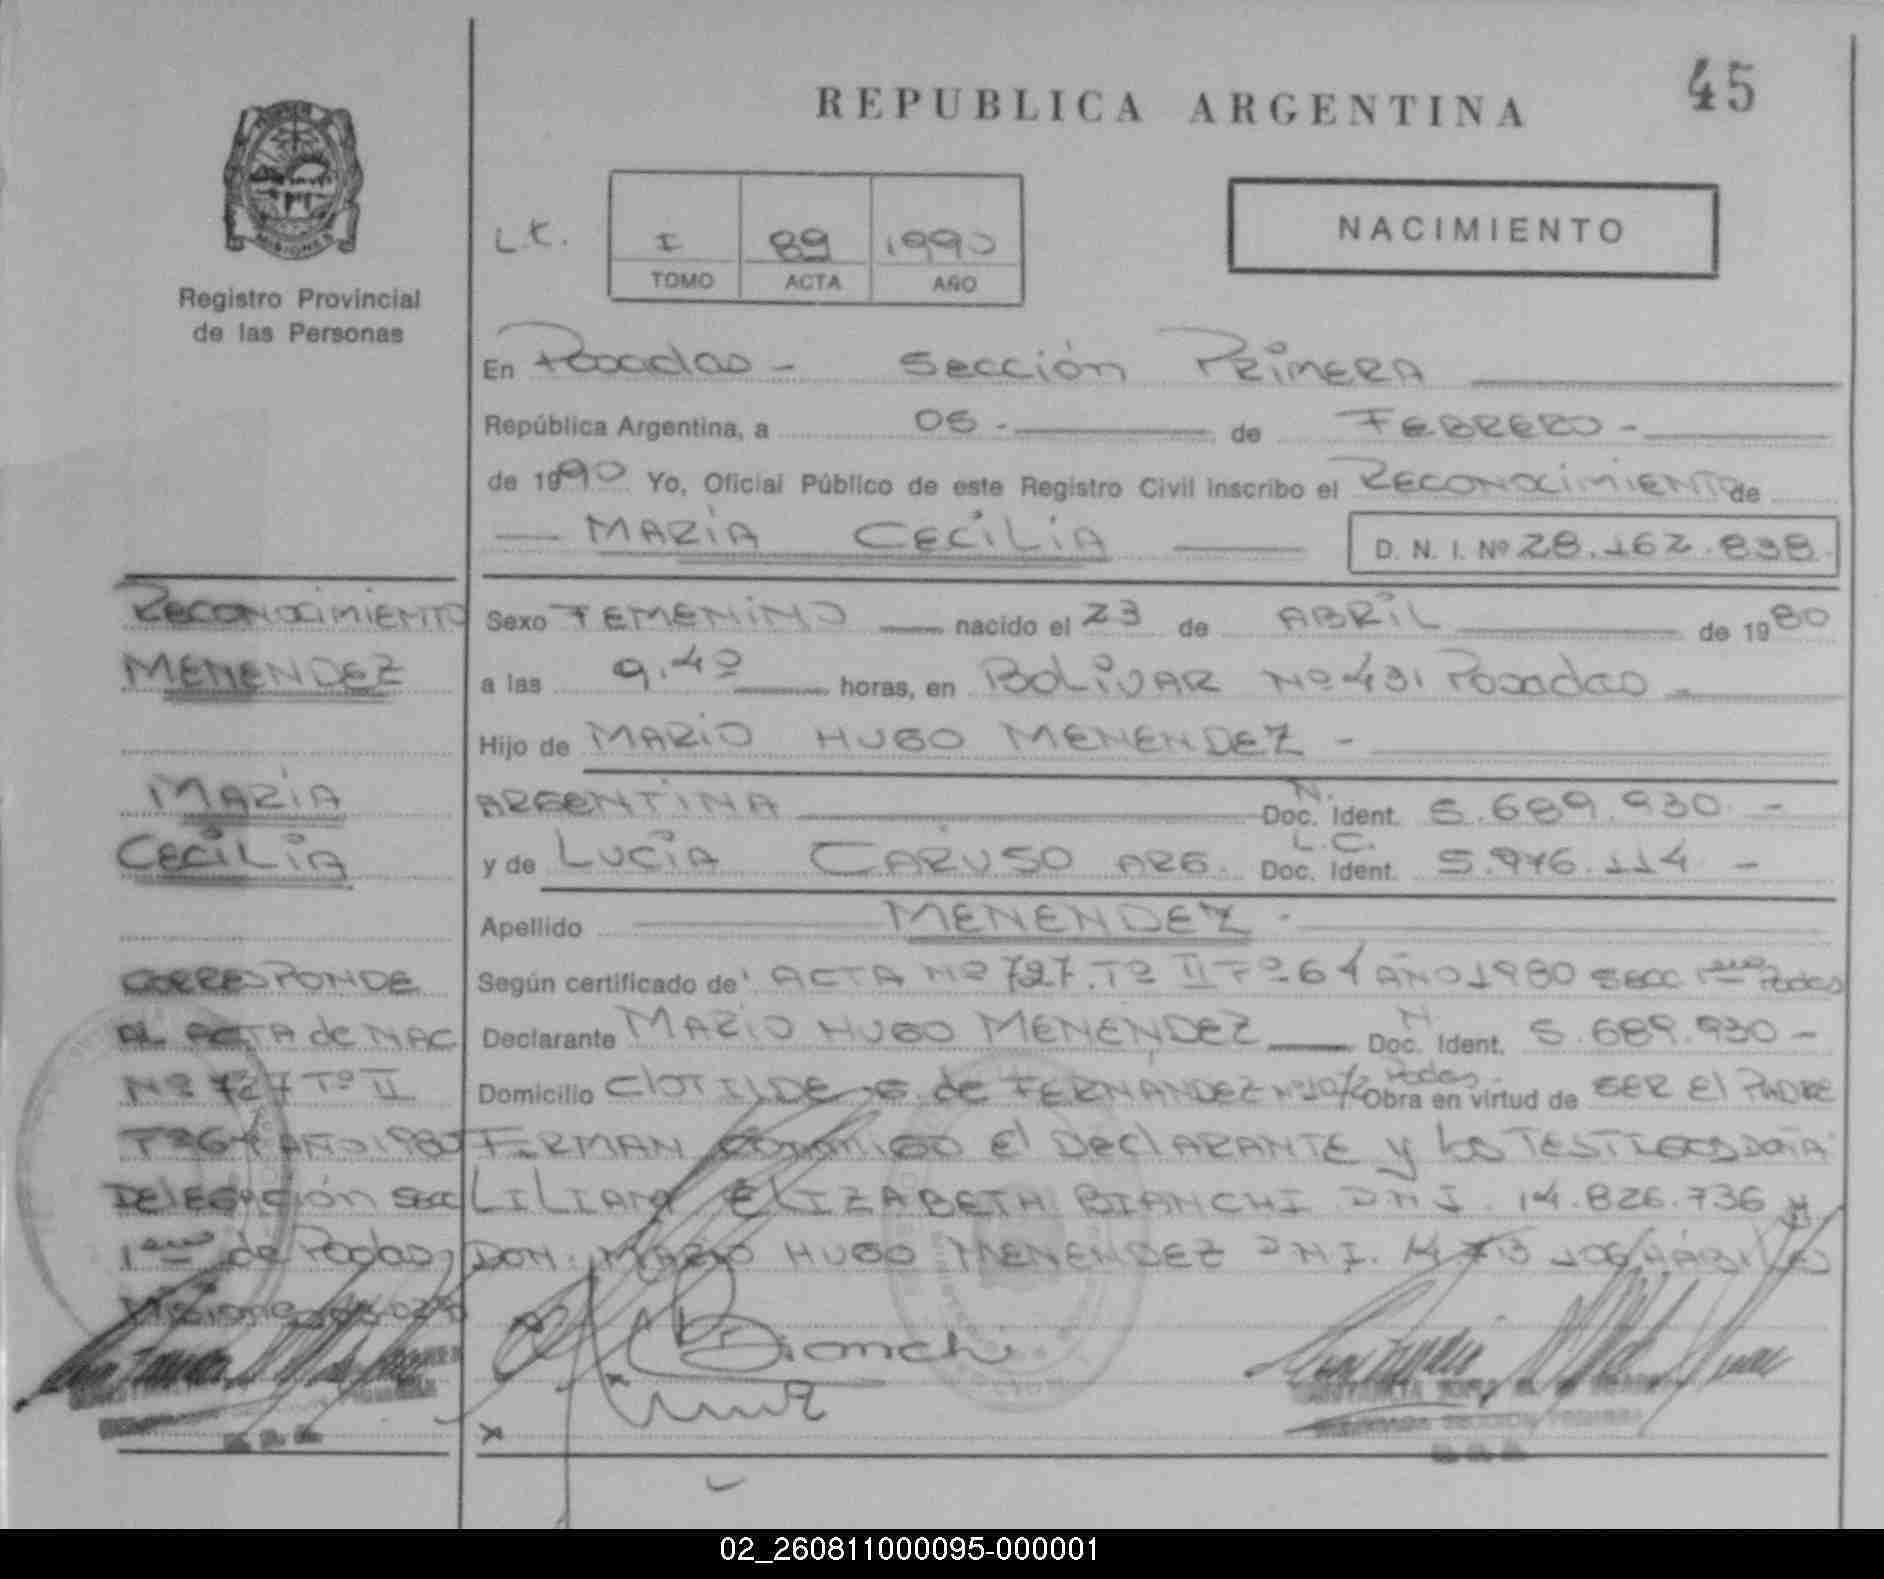 REPUBLICA ARGENTINA
45
MISIONES
Registro Provincial
de las Personas
NACIMIENTO
I 89 1990
TOMO ACTA AÑO
En Posadas - Sección Primera
República Argentina, a 05 - de FEBRERO -
de 1990 Yo, Oficial Público de este Registro Civil inscribo el RECONOCIMIENTO de
MARIA CECILIA D. N. I. Nº 28.162.838
Sexo FEMENINO nacido el 23 de ABRIL de 1980
a las 9.40 horas, en BOLIVAR Nº 431 Posadas -
Hijo de MARIO HUGO MENENDEZ -
ARGENTINA Doc. Ident. 5.689.930 -
y de LUCIA CARUSO ARG. L.C. Doc. Ident. 5.976.114 -
Apellido MENENDEZ -
Según certificado de ACTA Nº 727. Tº II Fº 64 AÑO 1980 SECC 1era Pdas
Declarante MARIO HUGO MENENDEZ Doc. Ident. 5.689.930 -
Domicilio CLOTILDE G. de FERNANDEZ Pdas. Obra en virtud de SER El PADRE
FIRMAN conmigo El DEClARANTE y los TESTIGOS DOÑA
LILIANA ELIZABETH BIANCHI D.N.I. 14.826.736 y
DON. MARIO HUGO MENENDEZ D.N.I.
RECONOCIMIENTO
MENENDEZ
MARIA
CECILIA
CORRESPONDE
AL ACTA de NAC
Nº 727 Tº II
Fº 64 AÑO 1980
DELEGACIÓN SECC
1era de Posadas
Bianchi
02_260811000095-000001